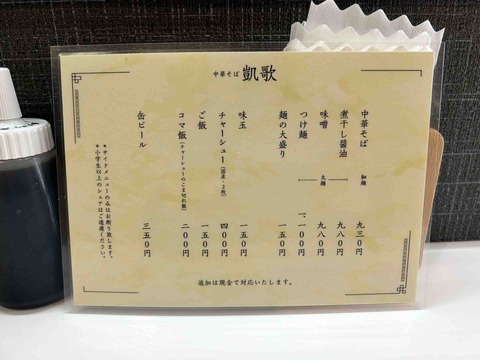 中華そば 凱歌
中華そば 細麺 九三〇円
煮干し醤油 九八〇円
味噌 太麺 九八〇円
つけ麺 一、一〇〇円
麺の大盛り 一五〇円
味玉 一五〇円
チャーシュー（国産・２枚） 四〇〇円
ご飯 一五〇円
コマ飯（チャーシューのこま切れ飯） 二〇〇円
缶ビール 三五〇円
＊サイドメニューのみはお断り致します。
＊小学生以上のシェアはご遠慮ください。
追加は現金で対応いたします。